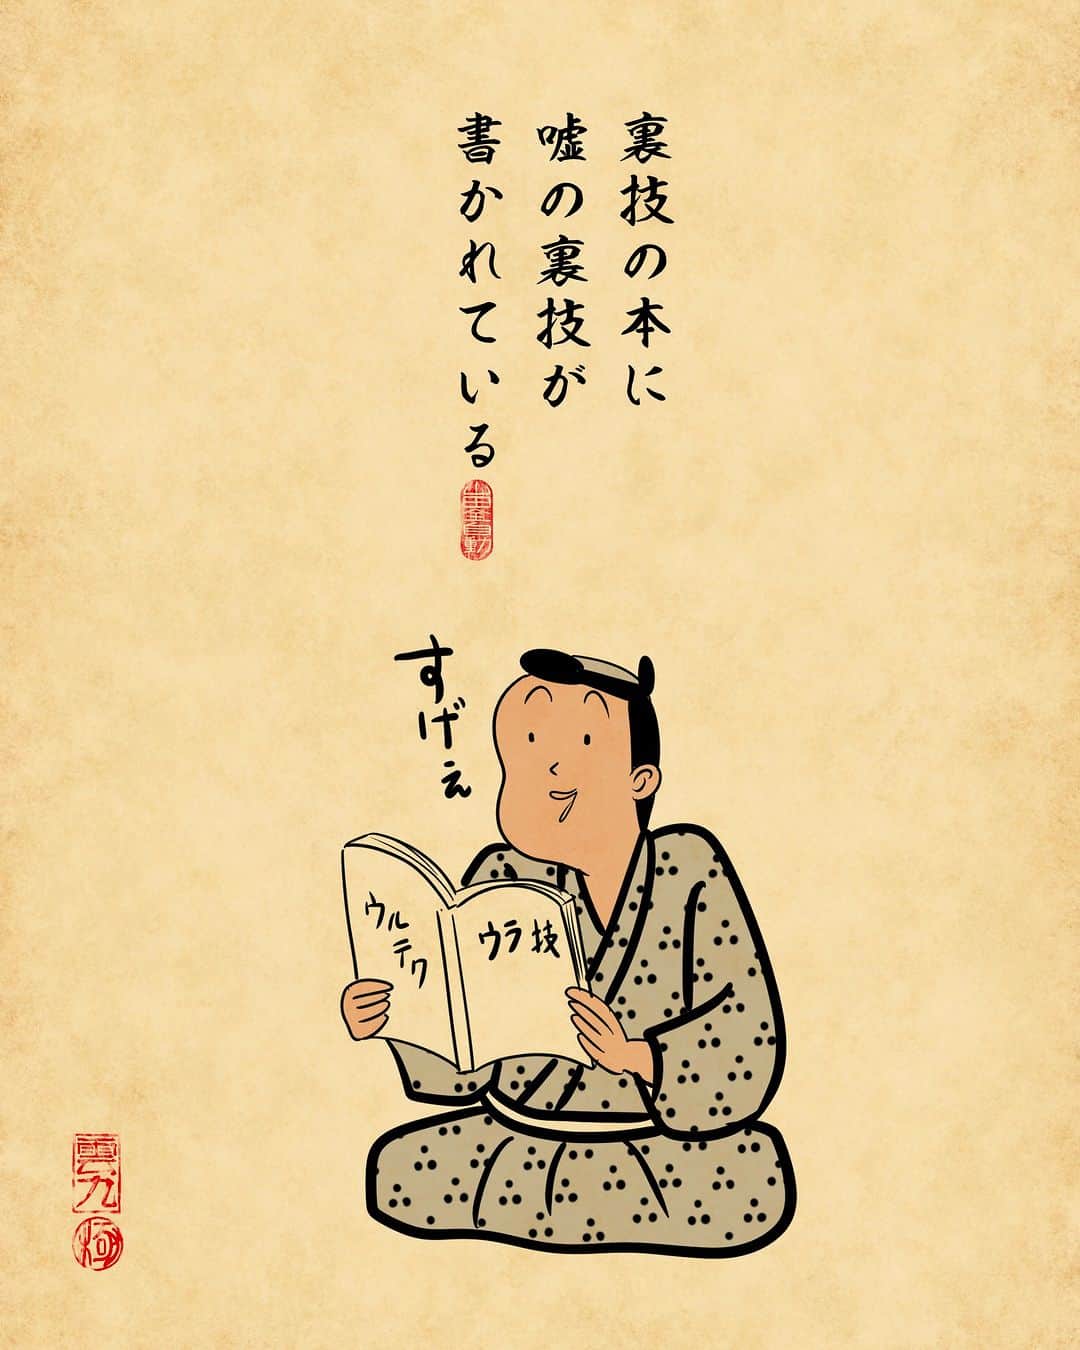 裏技の本に
嘘の裏技が
書かれている
すげぇ
ウルテク
ウラ技